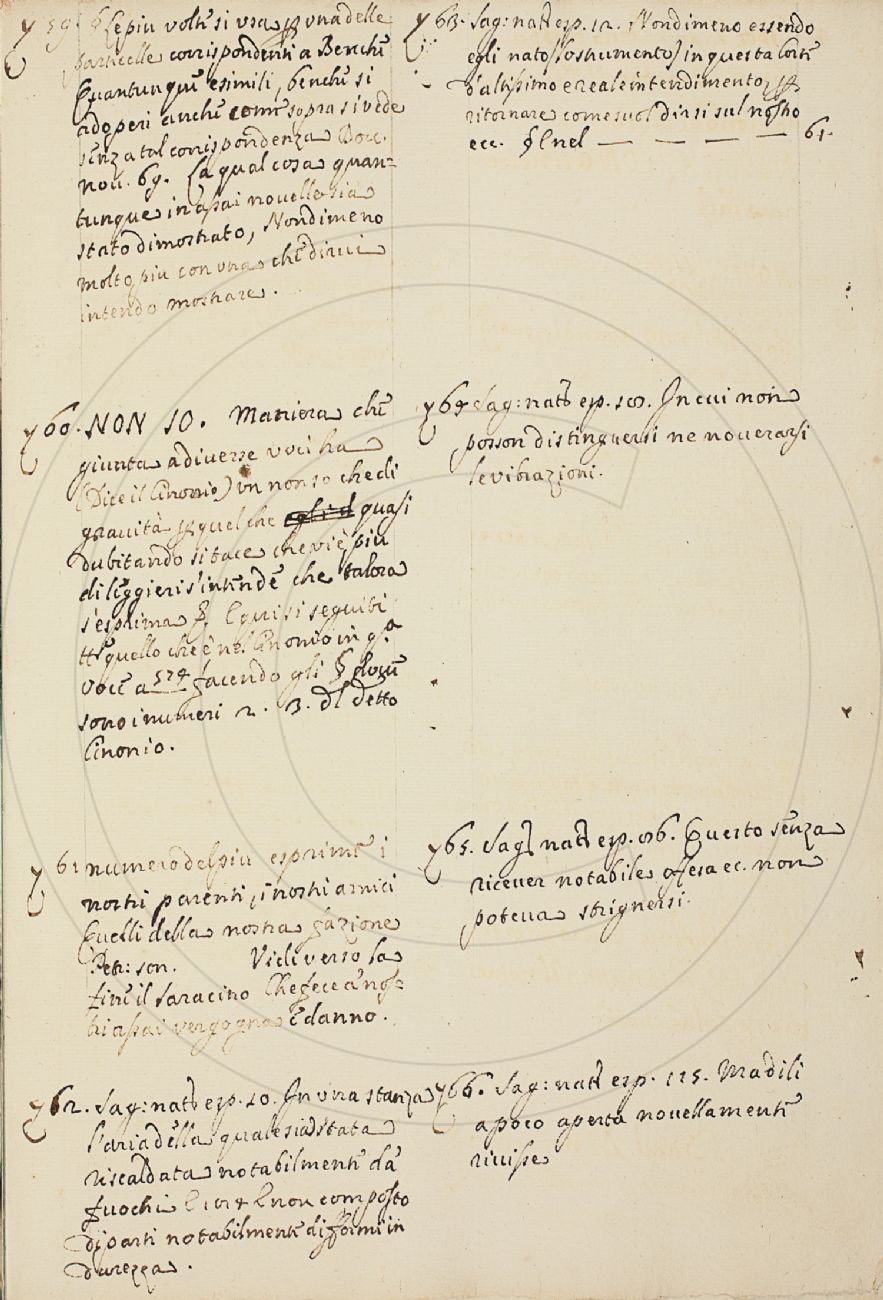 59. § E le piu volte si usa p una delle
particelle corrispondenti a Benche
Quantunque e simili, benche si
adoperi anche come sopra si vede
senza tal corrispondenza Bocc.
nov. 69. La qual cosa quan-
tunque in assai novelle sia
stato dimostrato, Nondimeno
molto piu con una che dirvi
intendo mostrare.
60. NON SO. Maniera che
giunta a diverse voci ha
(Dice il Cinonio) un non so che di
gravità p quel che quasi
dubitando si tace che vie piu
di leggieri s'intende che talora
s'esprima &. E qui si seguiti
tt° quello che è nel Cinonio in q.a
voce a 574 facendo gli § dove
sono i numeri 2. 3. dl detto
Cinonio.
61 numero del piu esprime i
nostri parenti, i nostri amici
Quelli della nostra fazione
Petr: son. Vidi verso la
fine il Saracino Che fece a nos-
tri assai vergogna E danno.
62. Sag: nat esp. 10. In una stanza
l'aria della quale sia stata
riscaldata notabilmente da
fuochi E
di parti notabilmente difformi in
durezza.
63. Sag: nat esp. 12. Nondimeno essendo
egli nato (lo strumento) in questa Corte
d'altissimo e reale intendimento, p
ritornare come suol dirsi sul nostro
ecc. § E nel — — — — 61.
64 Sag: nat esp. In cui non
posson distinguersi ne noverarsi
le vibrazioni.
65. Sag nat esp. Questo senza
ricever notabile offesa ec. non
poteva strignersi.
66. Sag: nat esp. 115. Ma di li
a poco aperta novellamente
rivisse